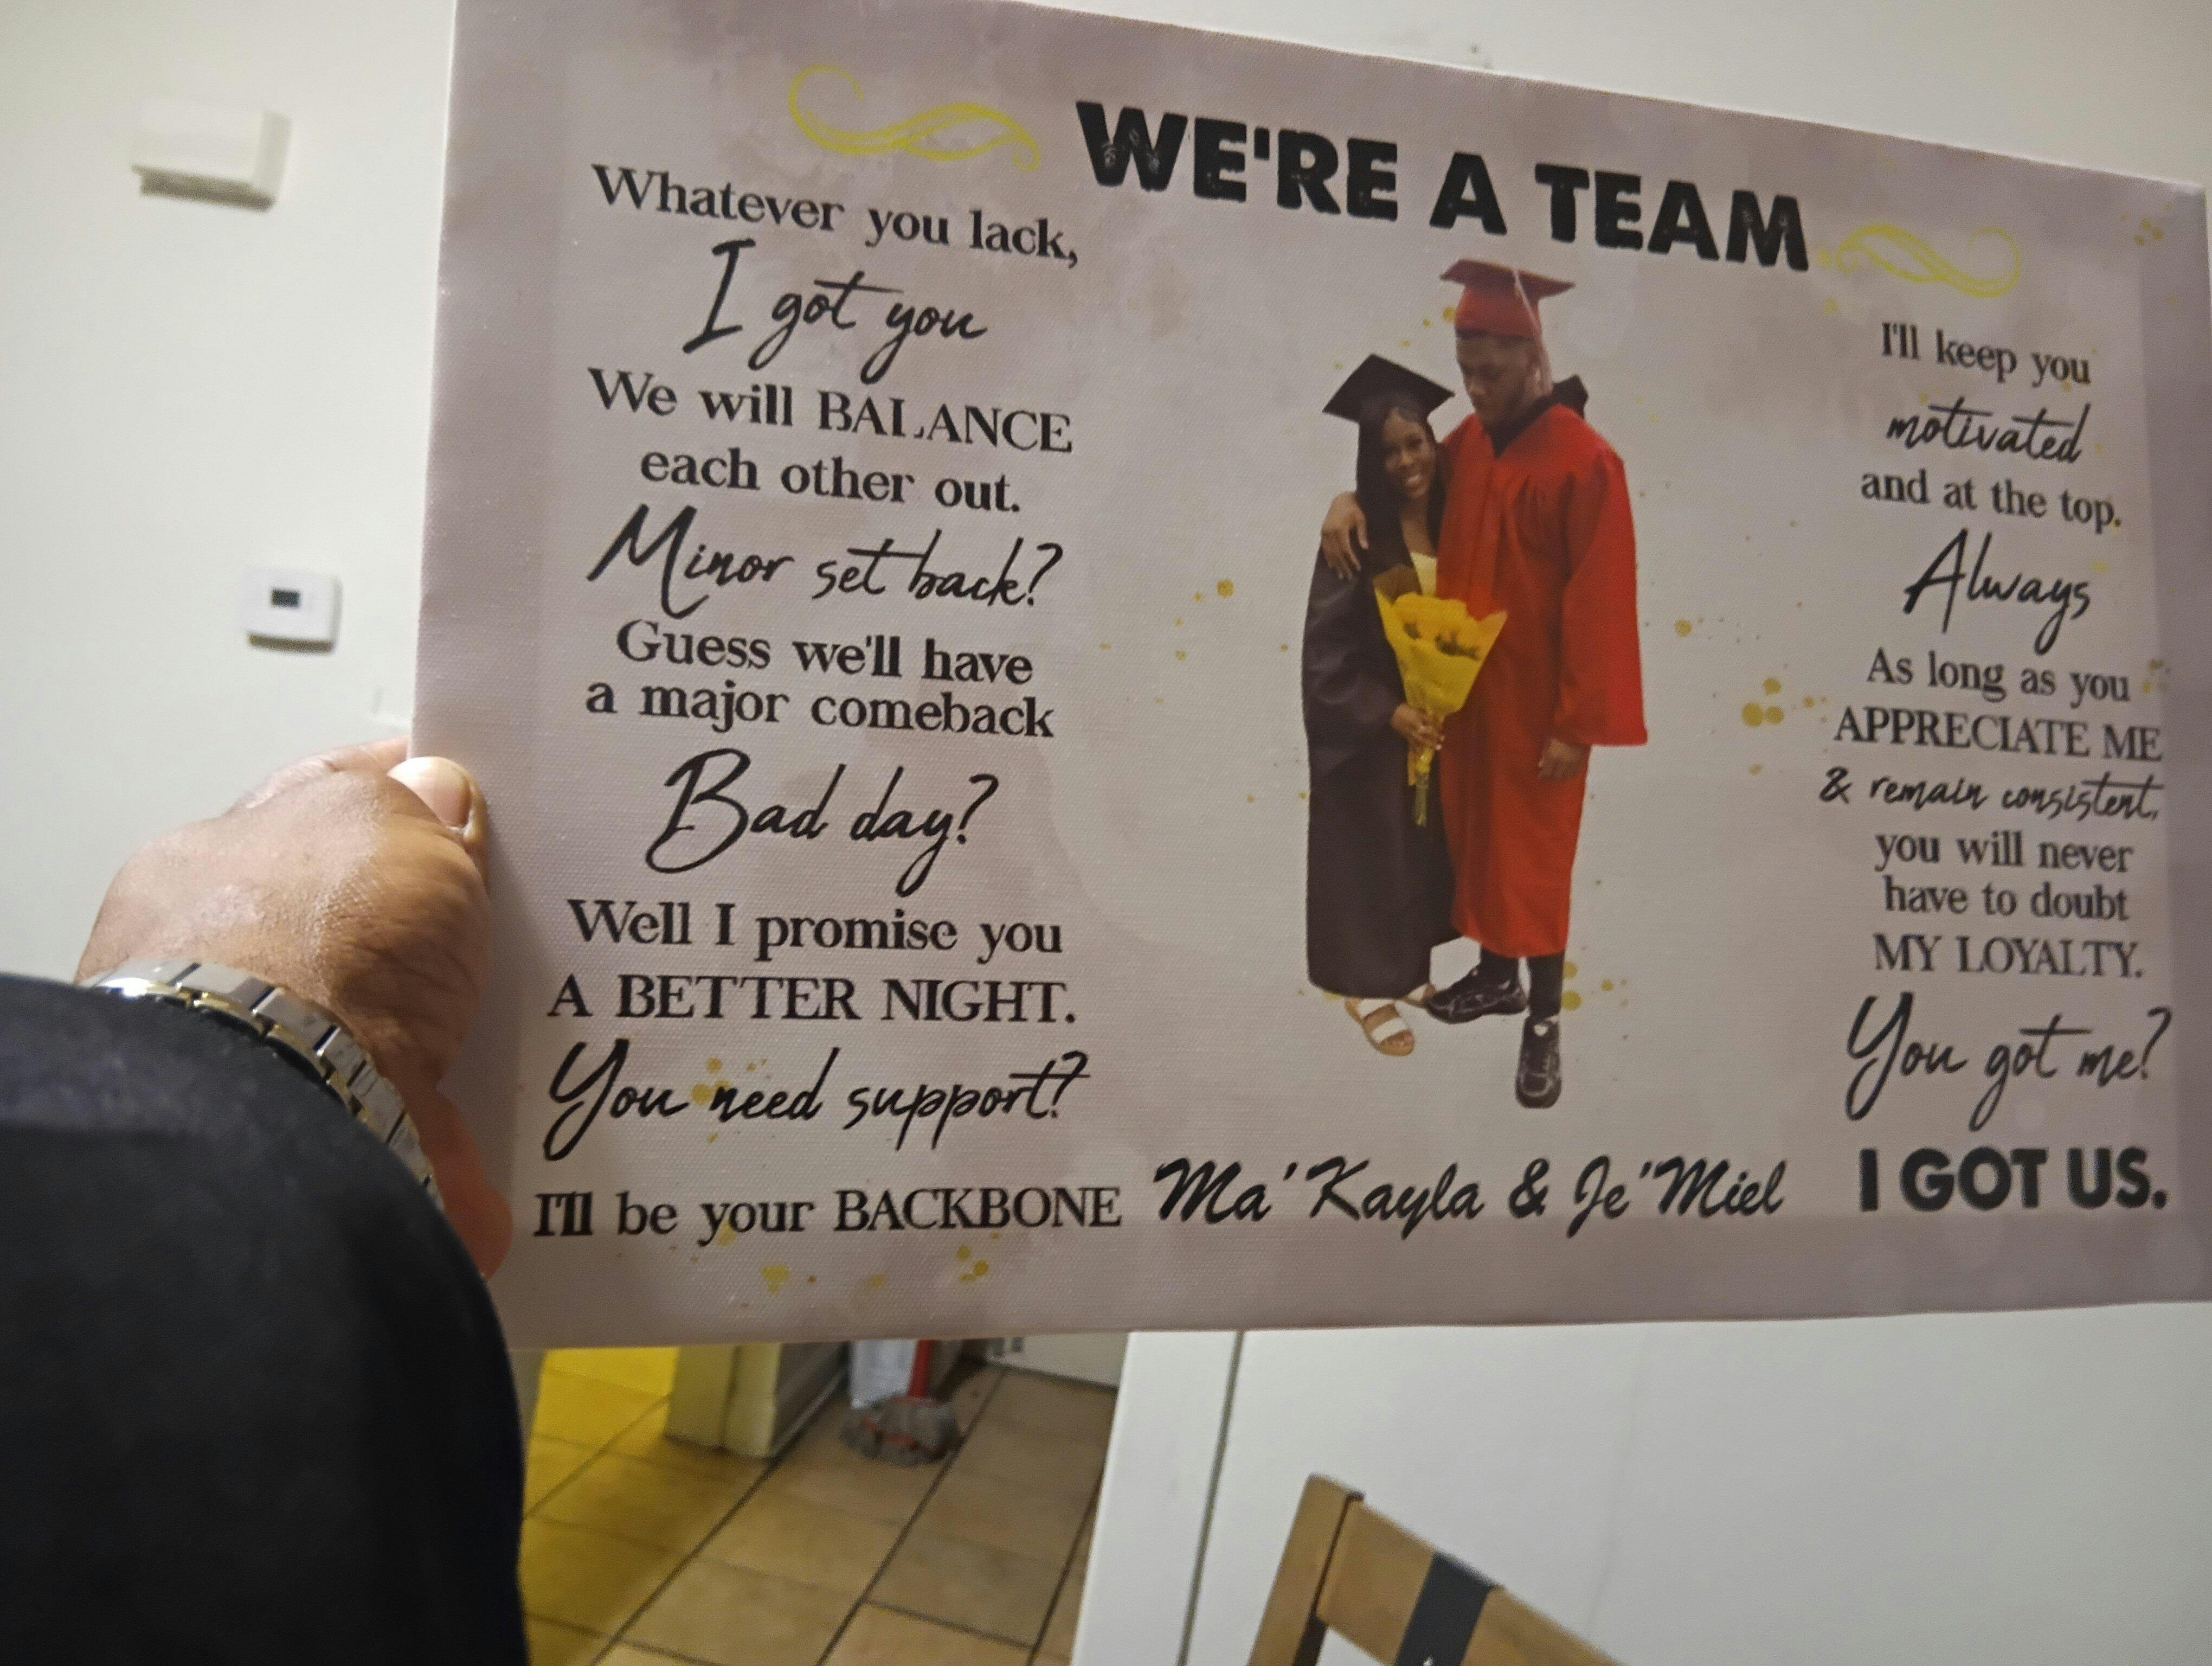 WE'RE A TEAM
Whatever you lack,
I got you
We will BALANCE
each other out.
Minor set back?
Guess we'll have
a major comeback
Bad day?
Well I promise you
A BETTER NIGHT.
You need support?
I'll be your BACKBONE
Ma'Kayla & Je'Miel
I'll keep you
motivated
and at the top.
Always
As long as you
APPRECIATE ME
& remain consistent,
you will never
have to doubt
MY LOYALTY.
You got me?
I GOT US.